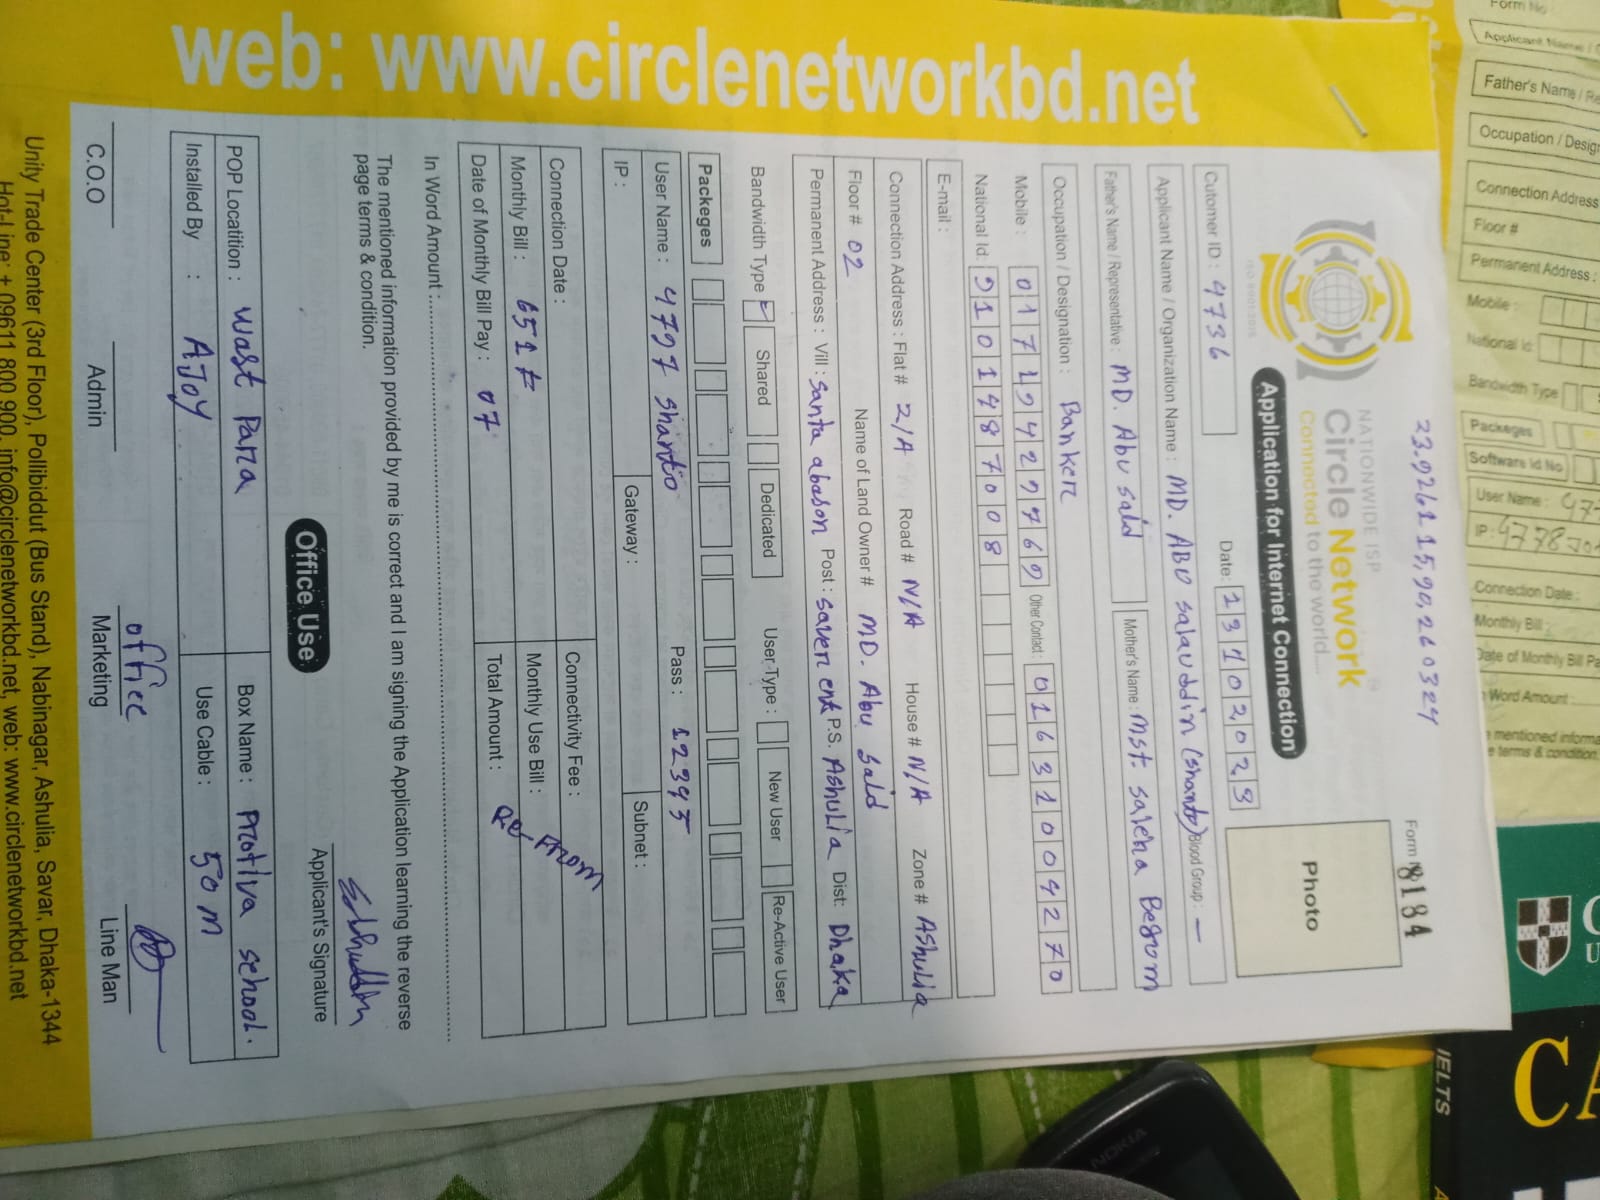 23.926115,90,260324
NATIONWIDE ISP
Circle Network
Connected to the world....
ISO 9001:2015
Form No
8184
Application for Internet Connection
Photo
Cutomer ID : 4736 Date: 13102023
Applicant Name / Organization Name : MD. ABU salauddin (shanto) Blood Group : —
Father's Name / Representative : MD. Abu said Mother's Name : Mst. saleha Begum
Occupation / Designation : Banker
Mobile : 01719429769 Other Contact : 01631009 4270
National Id: 9101487008
E-mail :
Connection Address : Flat # 2/A Road # N/A House # N/A Zone # AShulia
Floor # 02 Name of Land Owner # MD. Abu Said
Permanent Address : Vill : Santa abason Post : Saver ent P.S. AShuLia Dist: Dhaka
Bandwidth Type Shared Dedicated User Type : New User Re-Active User
Packeges
User Name : 4797 shanto Pass : 12345
IP : Gateway : Subnet :
Connection Date : Connectivity Fee :
Monthly Bill : 651 ৳ Monthly Use Bill :
Date of Monthly Bill Pay : 07 Total Amount :
Re-From
In Word Amount :
The mentioned information provided by me is correct and I am signing the Application learning the reverse
page terms & condition.
Applicant's Signature
Office Use
POP Locatition : Wast Para Box Name : Protiva school.
Installed By : AJOY Use Cable : 50 m
office
C.O.O Admin Marketing Line Man
Unity Trade Center (3rd Floor), Pollibiddut (Bus Stand), Nabinagar, Ashulia, Savar, Dhaka-1344
Hot-Line: + 09611 800 900, info@circlenetworkbd.net, web: www.circlenetworkbd.net
web: www.circlenetworkbd.net
Form No
Applicant Name /
Father's Name / Re
Occupation / Desig
Connection Address
Floor #
Permanent Address :
Mobile :
National Id:
Bandwidth Type
Packeges
Software Id No
User Name :
IP : 4778
Connection Date :
Monthly Bill :
Date of Monthly Bill Pa
Word Amount :
mentioned informa
terms & condition
CA
IELTS
NOKIA